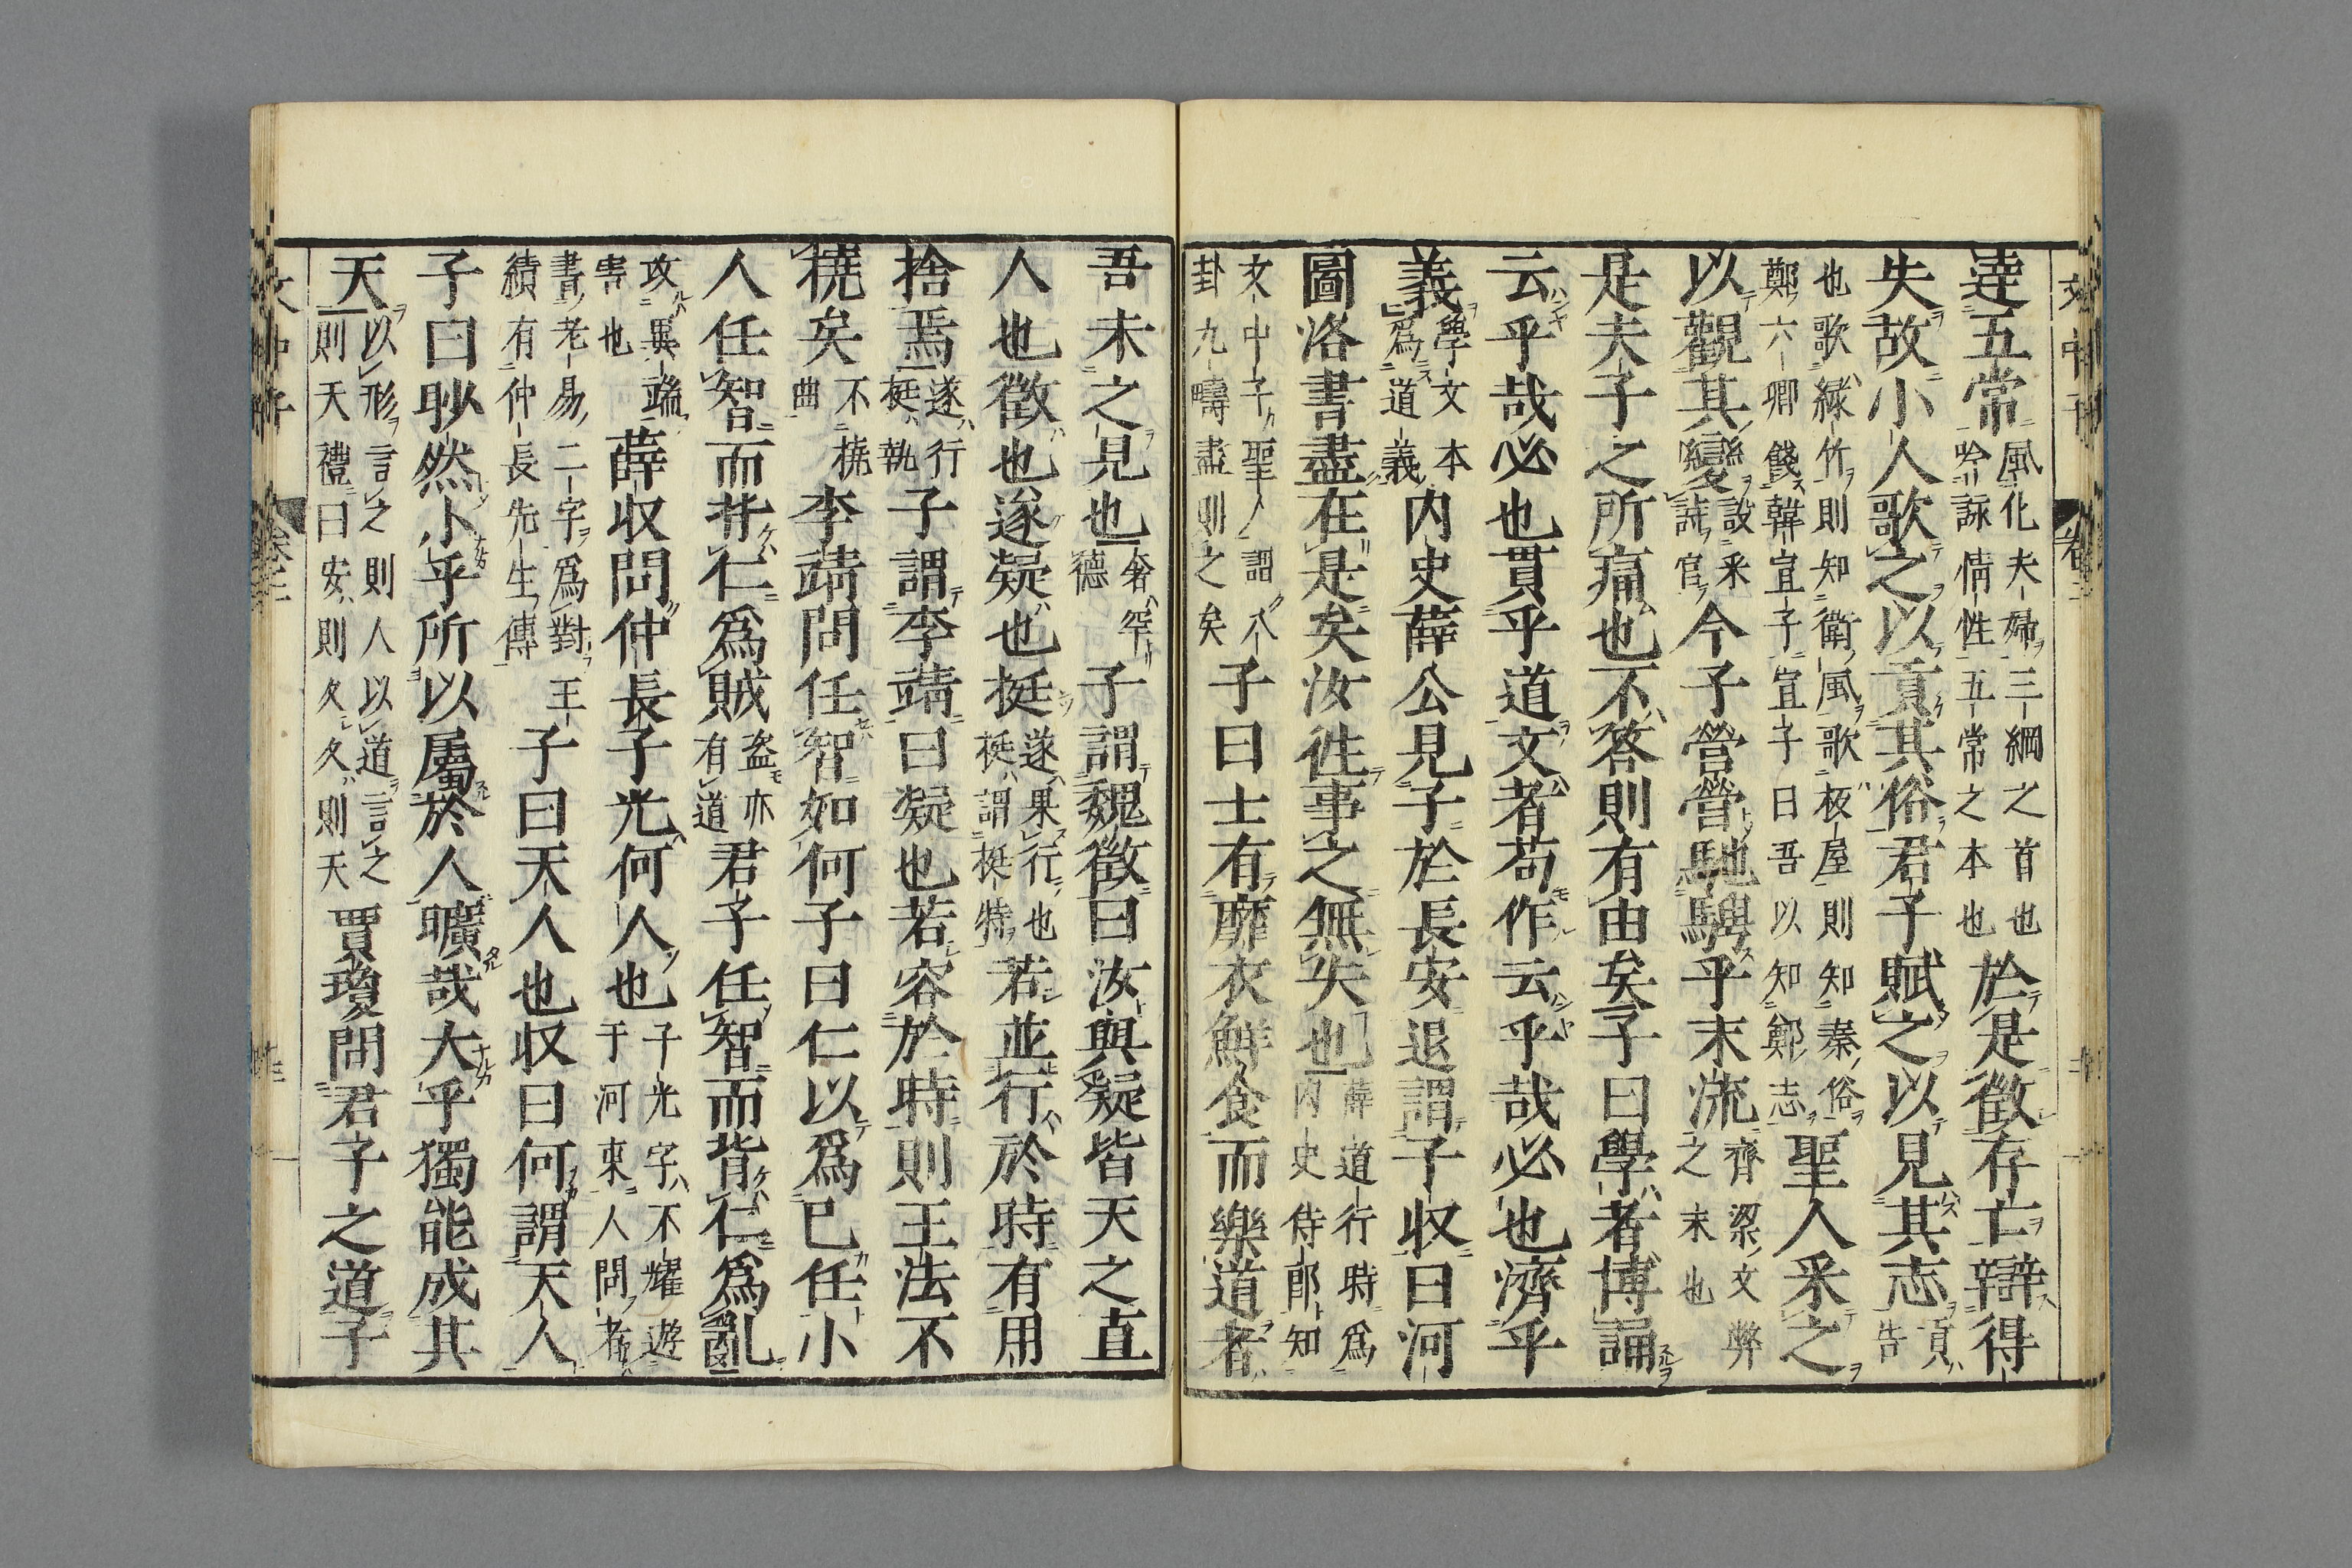 達五常風化夫婦三綱之首也吟詠情性五常之本也於是徵存亡辯得
失故小人歌之以貢其俗君子賦之以見其志貢告
也歌緑竹則知衛風歌板屋則知秦俗鄭六卿餞韓宣子宣子曰吾以知鄭志聖人采之
以觀其變設采詩官今子營營馳騁乎末流齊梁文弊之末也
是夫子之所痛也不答則有由矣子曰學者博誦
云乎哉必也貫乎道文者苟作云乎哉必也濟乎
義學文本爲道義内史薛公見子於長安退謂子収曰河
圖洛書盡在是矣汝徃事之無失也薛道行時爲内史侍郎知
文中子聖人謂八卦九疇盡則之矣子曰士有靡衣鮮食而樂道者
吾未之見也奢罕德子謂魏徵曰汝與凝皆天之直
人也徵也遂凝也挺遂果行也挺謂挺特若並行於時有用
捨焉遂行挺執子謂李靖曰凝也若容於時則王法不
撓矣不撓曲李靖問任智如何子曰仁以爲已任小
人任智而背仁爲賊盗亦有道君子任智而背仁爲亂
攻異端害也薛収問仲長子光何人也子光字不耀遊于河東人問者
書老易二字爲對王績有仲長先生傳子曰天人也収曰何謂天人
子曰眇然小乎所以屬於人曠哉大乎獨能成其
天以形言之則人以道言之則天禮曰安則久久則天賈瓊問君子之道子
文中子
卷三